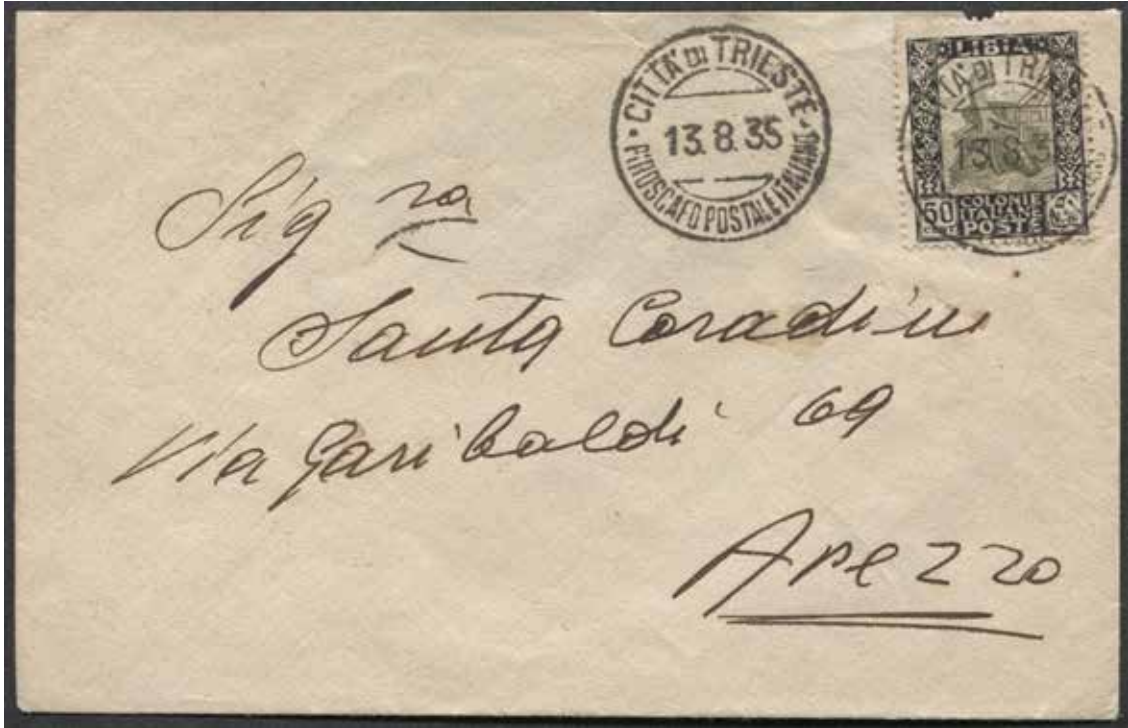 CITTÀ DI TRIESTE
13.8.35
PIROSCAFO POSTALE ITALIANO
LIBIA
TÀ DI TRI
13.8.3
50
COLONIE
ITALIANE
POSTE
Sig ra
Santa Coradini
Via Garibaldi 69
Arezzo